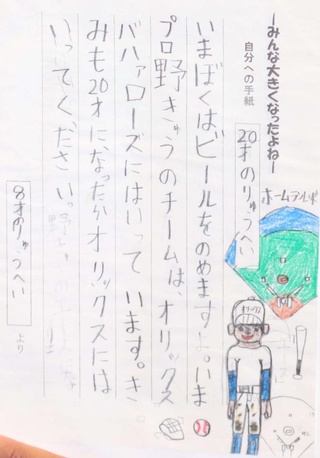 ―みんな大きくなったよね―
自分への手紙
20才のりゅうへい
いまぼくはビールをのめますよ。いま
プロ野きゅうのチームは、オリックス
バハァローズにはいって います。き
みも20才に、なったらオリックスには
いってください。
8才のりゅうへい
より
ホームラン
オリックス